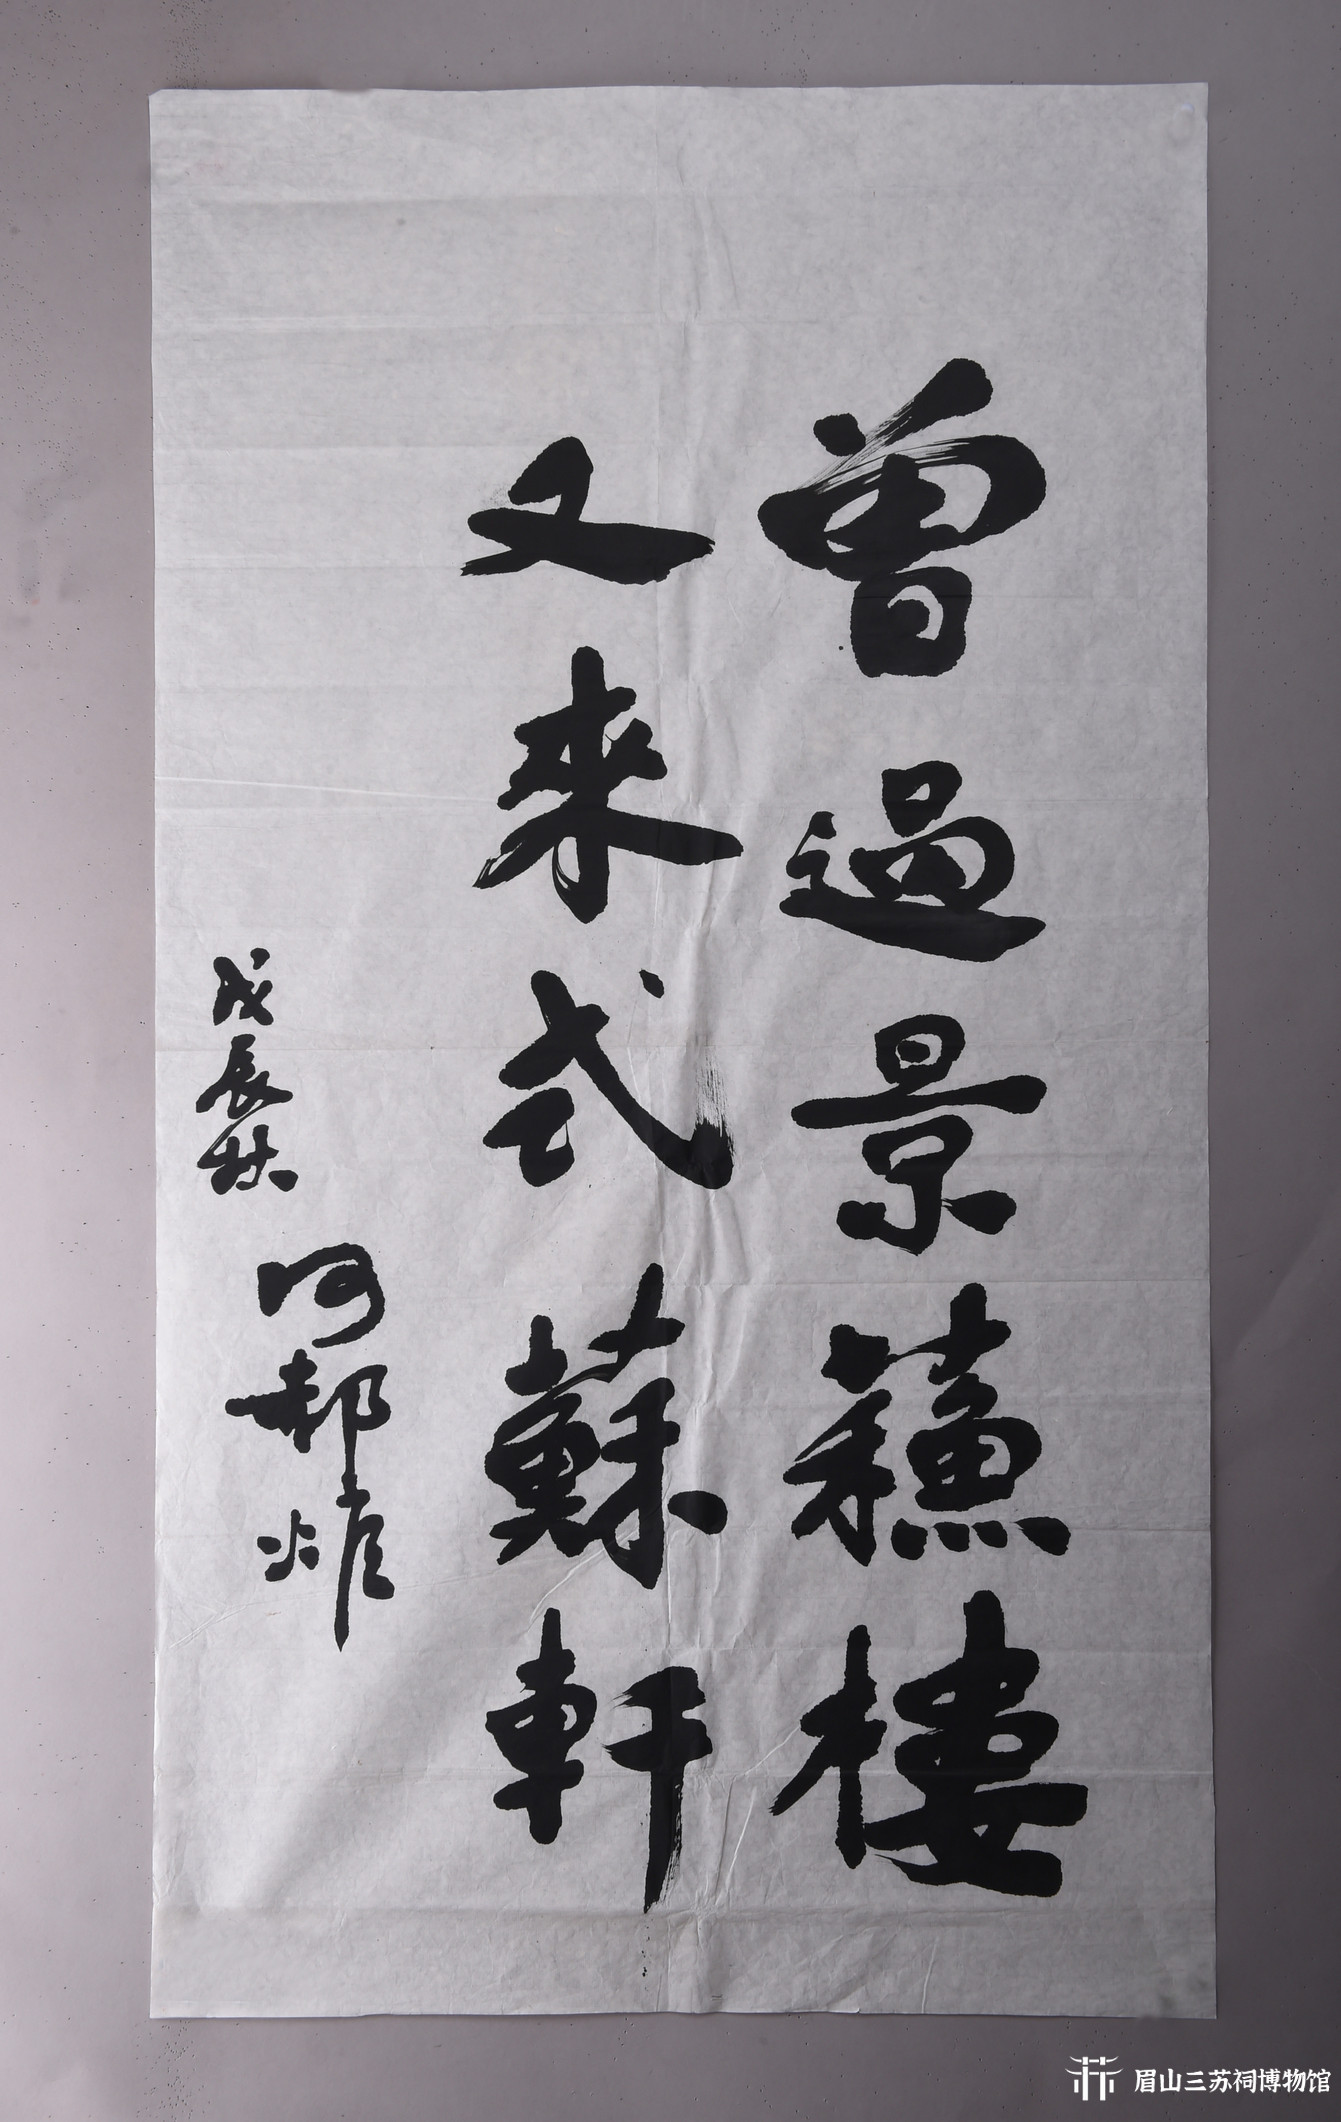 曾過景蘓樓
又來式蘇軒
戊辰秋
何郝炬
眉山三苏祠博物馆